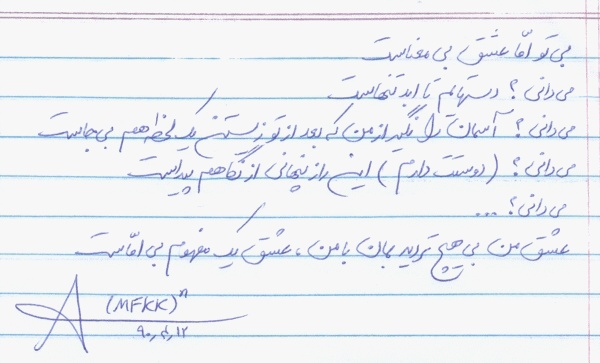 بی تو اما عشق بی معناست
می دانی؟ دستهایم تا ابد تنهاست
می دانی؟ آسمانت را نگیر از من که بعد از تو زیستن یک لحظه هم بی جاست
می دانی؟ (دوستت دارم) این راز پنهانی از نگاهم پیداست
می دانی؟ ...
عشق من بی هیچ تردید بمان با من، عشق یک مفهوم بی اماست
(MFKK)ⁿ